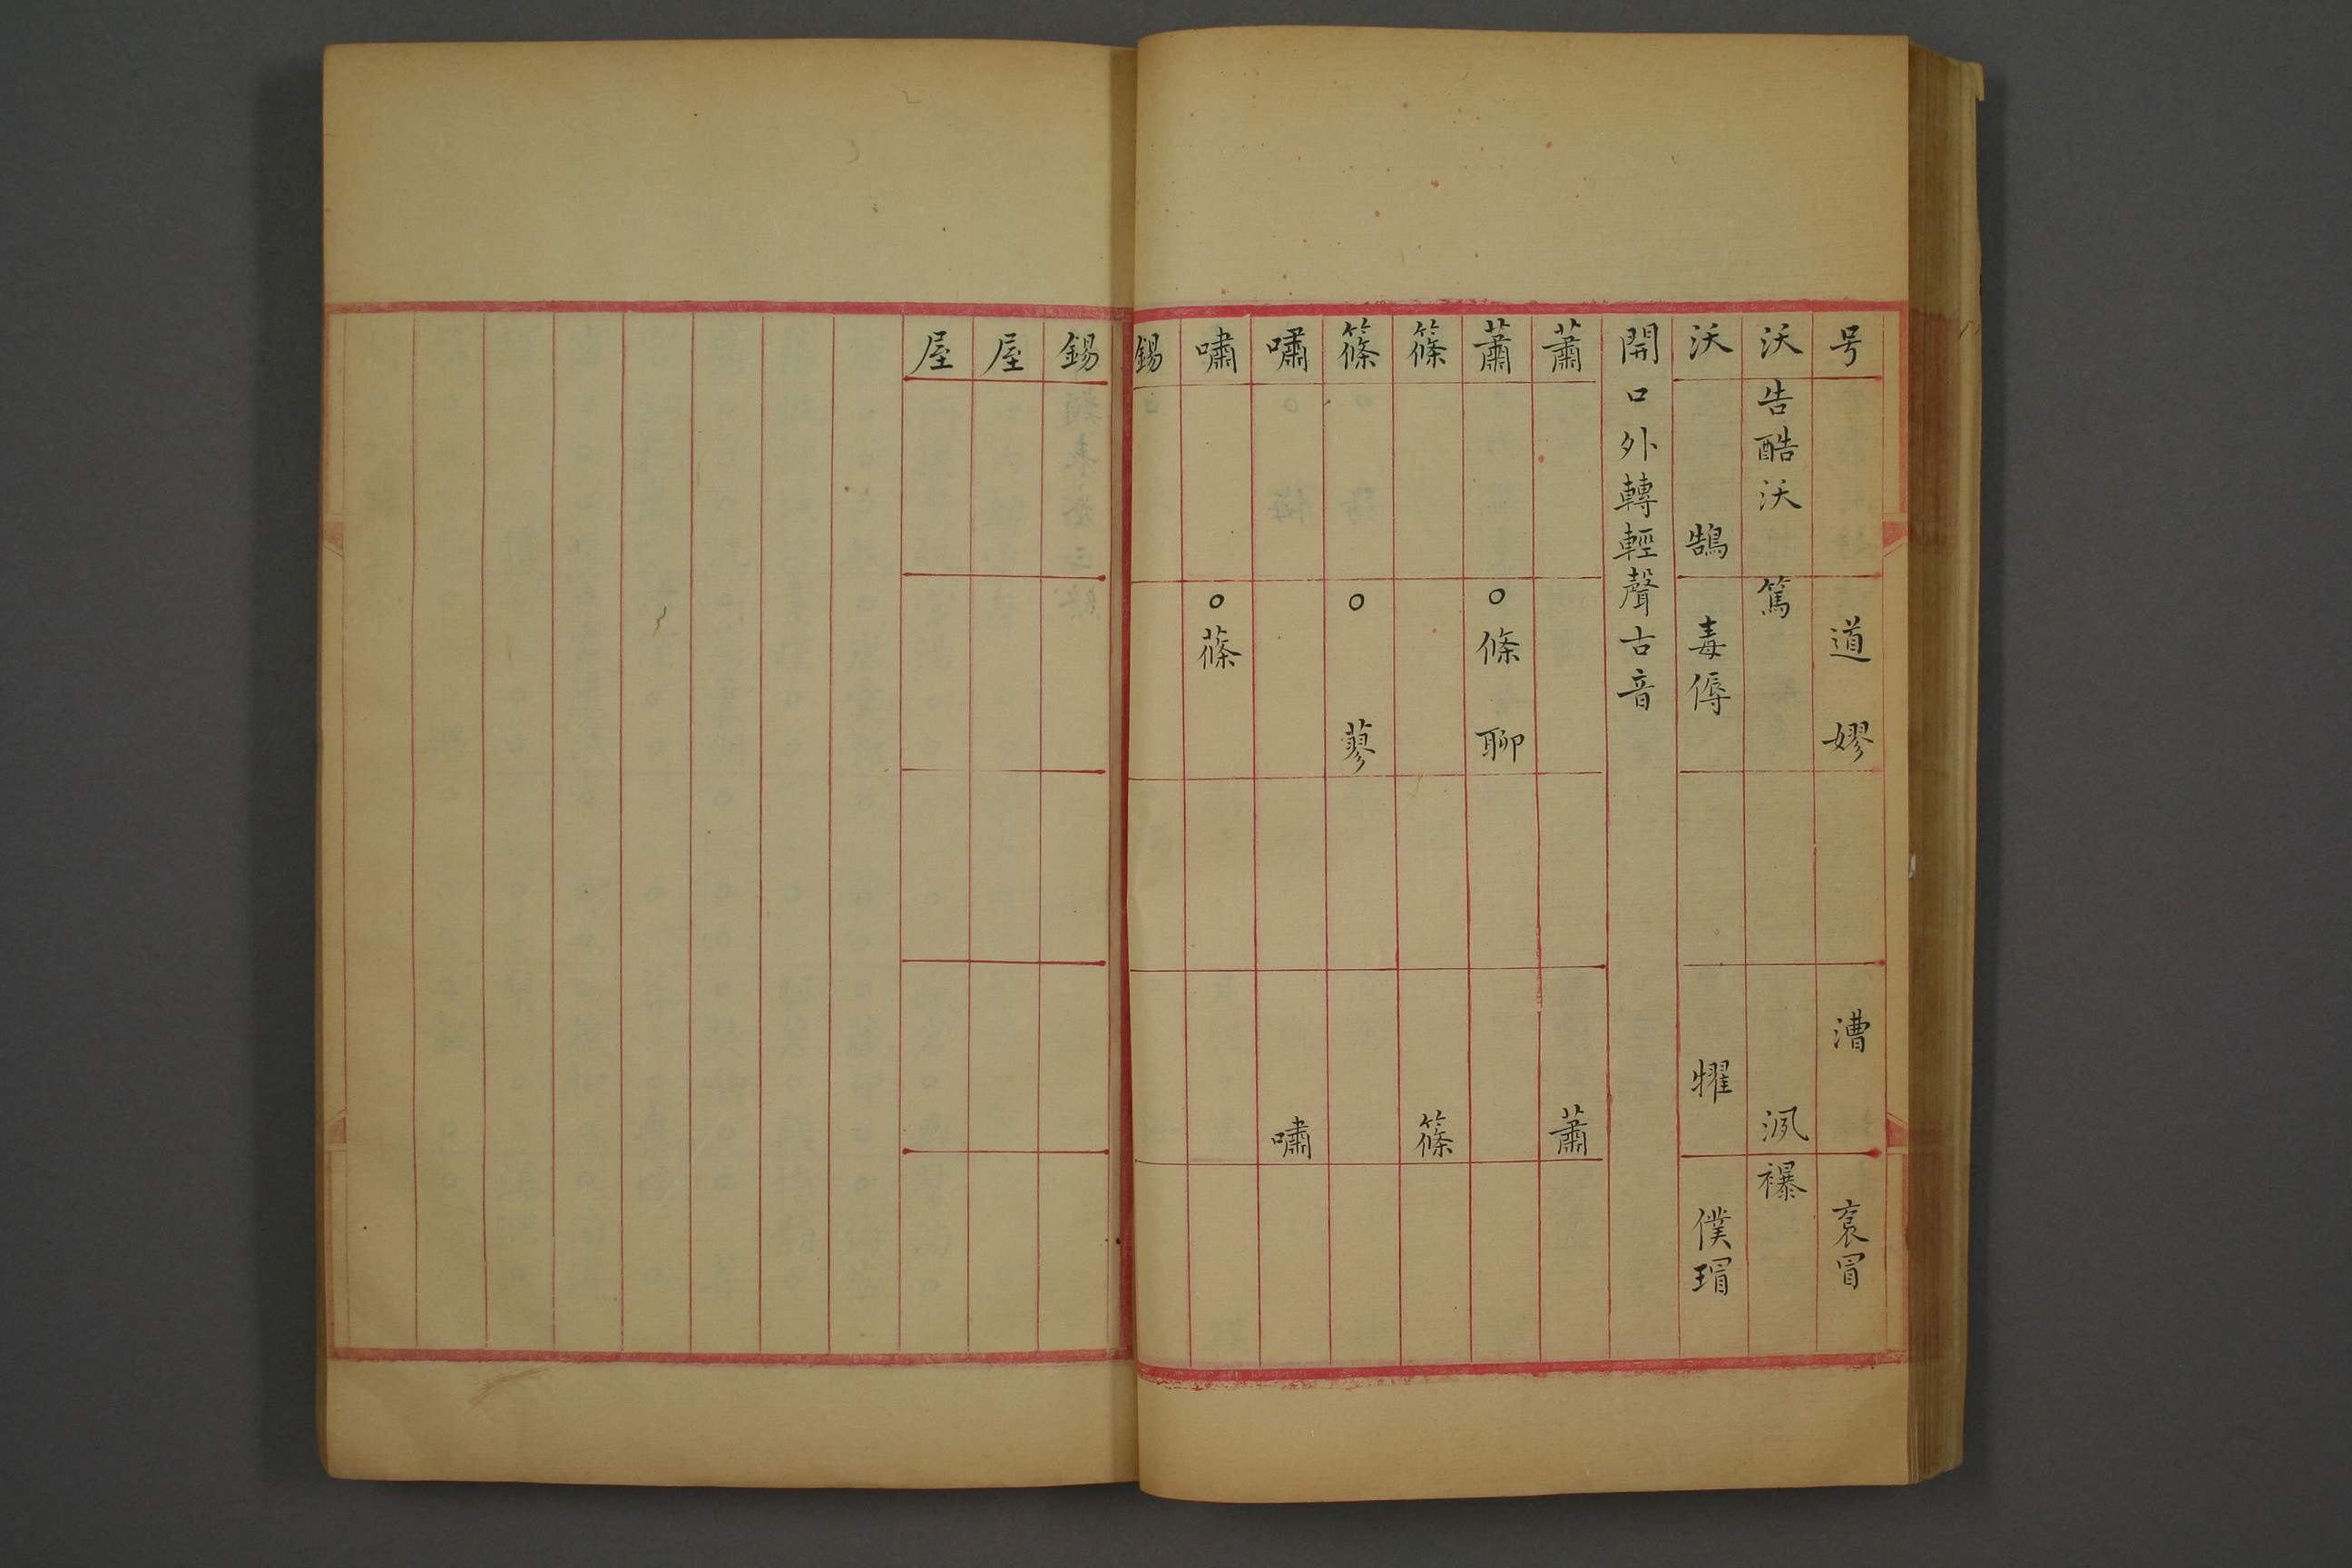 号 道 嫪 漕 袌 冒
沃 告 酷 沃 篤 洬 襮
沃 鵠 毒 僔 㹊 僕 瑁
開口外轉輕聲古音
蕭 蕭
蕭 ○ 條 聊
篠 篠
篠 ○ 蓼
嘯 嘯
嘯 ○ 蓧
錫
錫
屋
屋